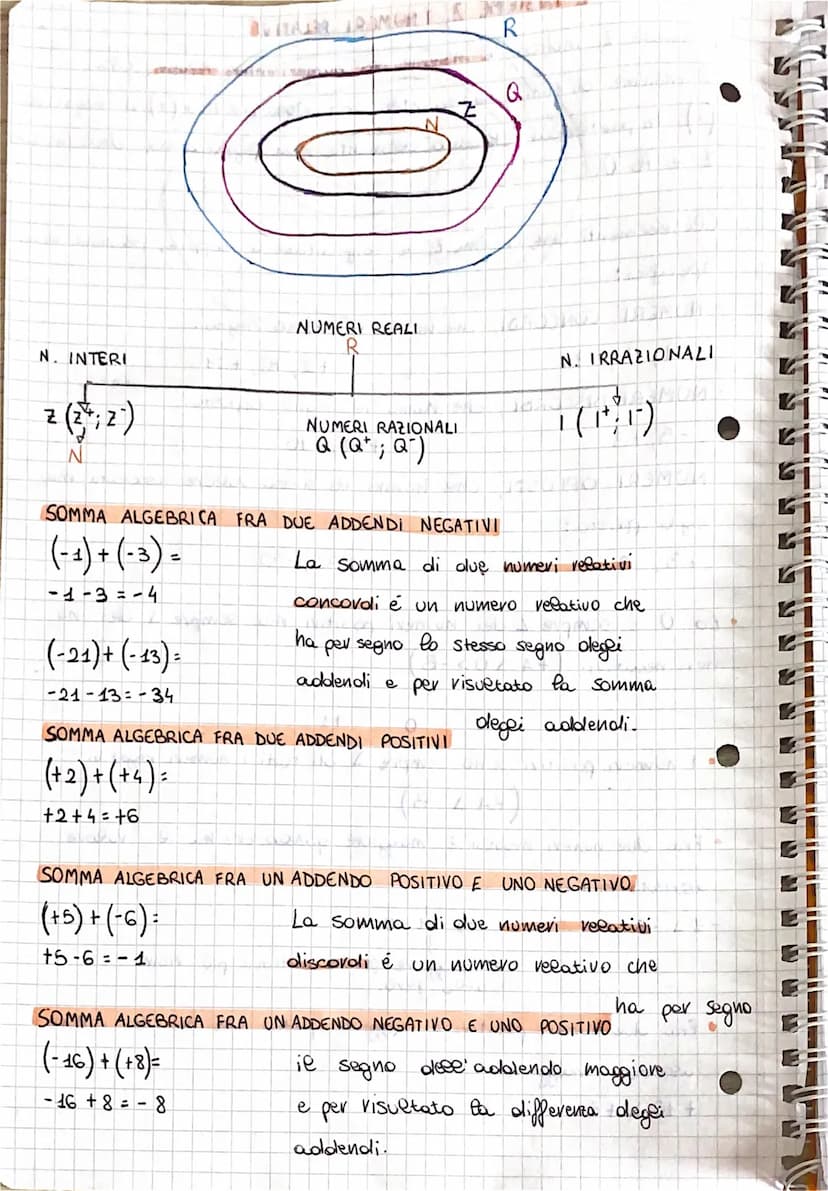 R
Q
Z
N
NUMERI REALI
R
N. INTERI
N. IRRAZIONALI
Z (Z⁺; Z⁻)
N
NUMERI RAZIONALI
Q (Q⁺; Q⁻)
I (I⁺; I⁻)
SOMMA ALGEBRICA FRA DUE ADDENDI NEGATIVI
(-1) + (-3) =
-1-3 = -4
(-21) + (-13) =
-21-13 = -34
La somma di due numeri relativi
concordi é un numero relativo che
ha per segno lo stesso segno degli
addendi e per risultato la somma
degli addendi.
SOMMA ALGEBRICA FRA DUE ADDENDI POSITIVI
(+2) + (+4) =
+2+4 = +6
SOMMA ALGEBRICA FRA UN ADDENDO POSITIVO E UNO NEGATIVO
(+5) + (-6) =
+5-6 = -1
La somma di due numeri relativi
discordi é un numero relativo che
ha per segno
SOMMA ALGEBRICA FRA UN ADDENDO NEGATIVO E UNO POSITIVO
(-16) + (+8) =
-16 + 8 = - 8
il segno dell'addendo maggiore
e per risultato la differenza degli
addendi.